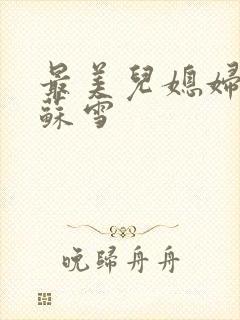 最美兒媳婦
蘇雪
晚歸舟舟